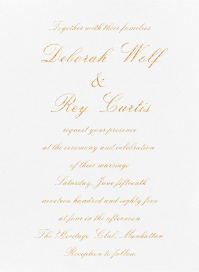 Together with their families
Deborah Wolf
&
Roy Curtis
request your presence
at the ceremony and celebration
of their marriage
Saturday, June fifteenth
nineteen hundred and eighty five
at four in the afternoon
The Heritage Club, Manhattan
Reception to follow